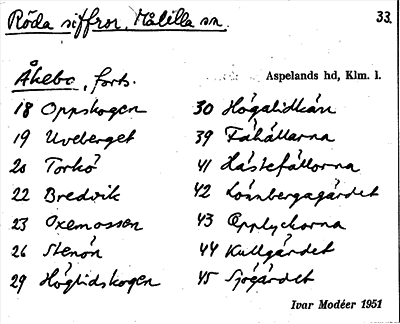 Röda siffror. Målilla sn. 33.
Åkebo, forts. Aspelands hd, Klm. l.
18 Oppskogen
19 Uveberget
20 Torkö
22 Bredvik
23 Oxemossen
26 Stenön
29 Högtidskogen
30 Högalidkärr
39 Fåhällarna
41 Hästefållorna
42 Lönnbergagärdet
43 Epplyckorna
44 Kullgärdet
45 Sjögärdet
Ivar Modéer 1951